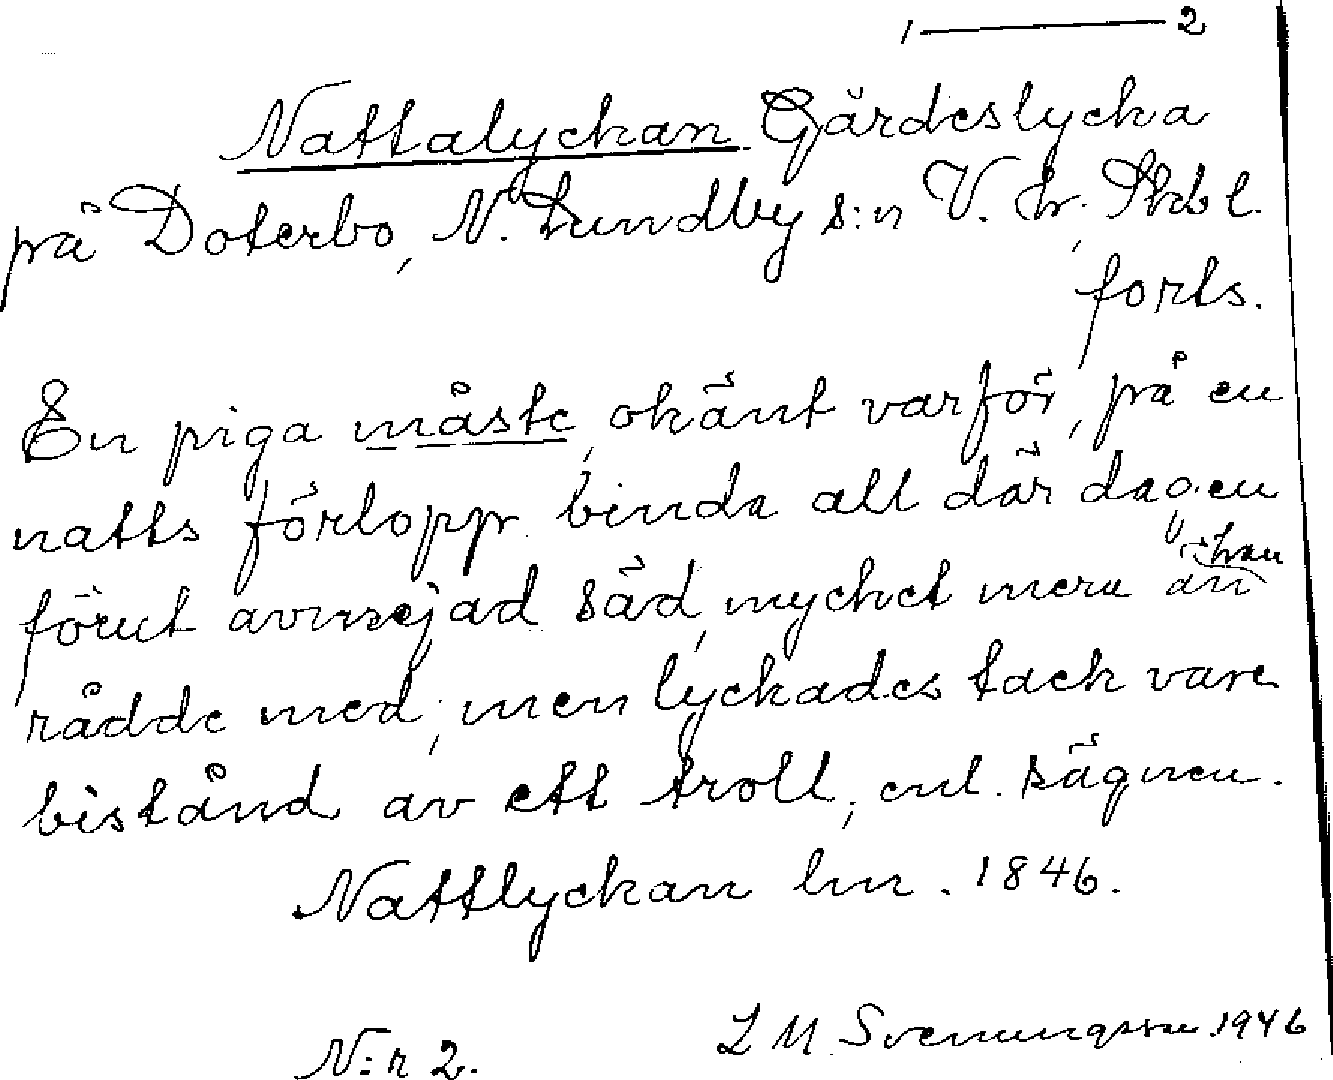 1 — 2
Nattalyckan Gärdeslycka
på Doterbo, N. Lundby s:n V. hr, Skbl.
forts.
En piga måste, okänt varför, på en
natts förlopp binda all där dagen
förut avmejad säd, mycket mera än hon
rådde med, men lyckades tack vare
bistånd av ett troll, enl. sägnen.
Nattlyckan lm. 1846.
L M Svenungsson 1946
N:r 2.